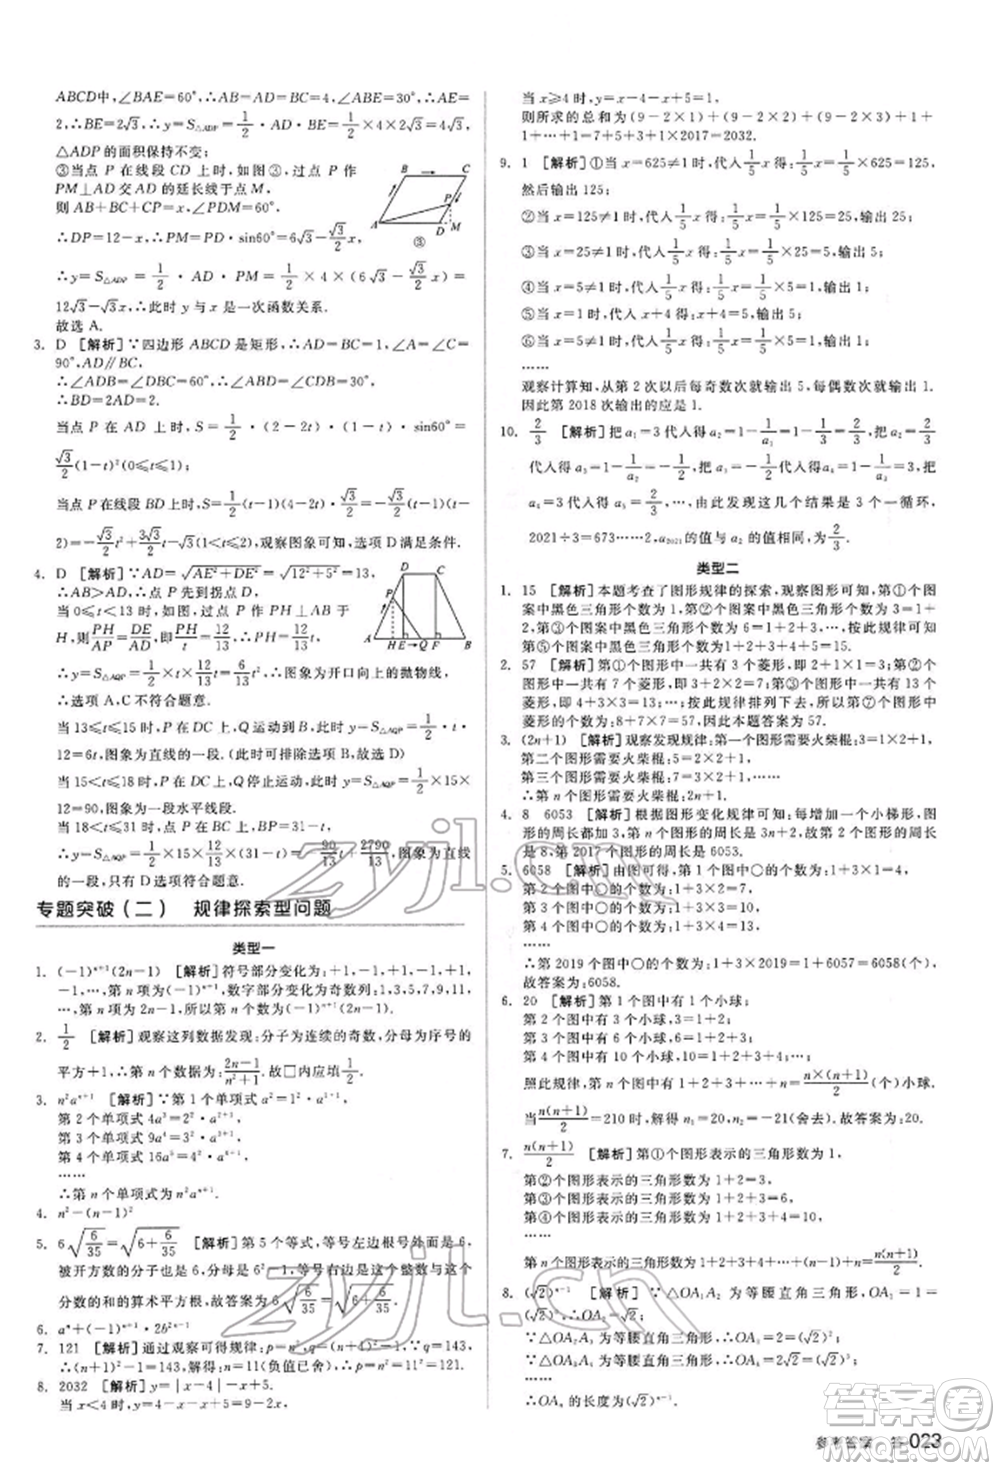 ABCD中,∠BAE=60°,∴AB=AD=BC=4,∠ABE=30°,∴AE=
2,∴BE=2√3,∴y=S△ADP=1/2·AD·BE=1/2×4×2√3=4√3,
△ADP的面积保持不变;
③当点 P 在线段 CD 上时,如图③,过点 P 作
PM⊥AD 交 AD 的延长线于点 M,
则 AB+BC+CP=x,∠PDM=60°,
∴DP=12-x,∴PM=DP·sin60°=6√3-√3/2 x,
∴y=S△ADP=1/2·AD·PM=1/2×4×(6√3-√3/2 x)=
12√3-√3x,∴此时 y 与 x 是一次函数关系.
故选 A.
B C P A D M ③
3. D [解析]∵四边形 ABCD 是矩形,∴∠A=∠C=
90°,AD∥BC.
∴∠ADB=∠DBC=60°,∴∠ABD=∠CDB=30°,
∴BD=2AD=2.
当点 P 在线段 AD 上时,S=1/2·(1-t)·(1-t)·sin60°=
√3/4(1-t)²(0≤t≤1).
当点 P 在线段 BD 上时,S=1/2(t-1)(2-t)·√3/2=√3/4(t-1)(t-
4. D [解析]∵AD=√(AE²+DE²)=√(12²+5²)=13,
∴AB>AD,∴点 P 先到拐点 D.
当 0≤t≤13 时,过点 P 作 PH⊥AB 于
H,则PH/AP=DE/AD,即PH/t=12/13,∴PH=12/13 t,
∴选项 A,C 不符合题意.
D C P A H E→Q F B
当 13<t≤15 时,P 在 DC 上,Q 运动到 B 点,y=S△AQP=1/2·t·
12=6t,图象为直线的一段,∴可排除选项 B,故选 D)
当 15<t≤18 时,P 在 DC 上,Q 停止运动,y=S△AQP=1/2×15×
12=90,图象为一段水平线段,
专题突破(二) 规律探索型问题
类型一
1. (-1)ⁿ⁺¹(2n-1) [解析]符号部分变化为:+1,-1,+1,-1,+
1,-1,…,为(-1)ⁿ⁺¹,数字部分变化为奇数列:1,3,5,7,9,11,
…,为 2n-1,所以第 n 个数为(-1)ⁿ⁺¹(2n-1).
2. 1/2 [解析]观察这列数据发现:分子为连续的奇数,分母为序号的
平方+1,∴第 n 个数据为:(2n-1)/(n²+1).故□内应填1/2.
3. n²aⁿ⁺¹ [解析]∵第 1 个单项式 a²=1²·a¹⁺¹,
第 2 个单项式 4a³=2²·a²⁺¹,
第 3 个单项式 9a⁴=3²·a³⁺¹,
第 4 个单项式 16a⁵=4²·a⁴⁺¹,
……
∴第 n 个单项式为 n²aⁿ⁺¹.
4. n²-(n-1)²
5. 6√(6/35)=√(6+6/35) [解析]第 5 个等式,等号左边根号外面是 6,
被开方数的分子也是 6,分母是 6²-1,等号右边是这个整数与这个
分数的和的算术平方根,故答案为 6√(6/35)=√(6+6/35).
7. 121 [解析]通过观察可得规律:p=n²,q=(n+1)²-1,∵q=143,
∴(n+1)²-1=143,解得:n=11(负值已舍),∴p=n²=11²=121.
8. 2032 [解析]y=|x-4|-x+5.
当 x<4 时,y=4-x-x+5=9-2x,
当 x≥4 时,y=x-4-x+5=1,
则所求的总和为(9-2×1)+(9-2×2)+(9-2×3)+1+
1+…+1=7+5+3+1×2017=2032.
9. 1 [解析]①当 x=625≠1 时,代入1/5x 得:1/5x=1/5×625=125,
然后输出 125;
②当 x=125≠1 时,代入1/5x 得:1/5x=1/5×125=25,输出 25;
③当 x=25≠1 时,代入1/5x 得:1/5x=1/5×25=5,输出 5;
④当 x=5≠1 时,代入1/5x 得:1/5x=1/5×5=1,输出 1;
⑤当 x=1 时,代入 x+4 得:x+4=5,输出 5;
⑥当 x=5≠1 时,代入1/5x 得:1/5x=1/5×5=1,输出 1;
……
观察计算知,从第 2 次以后每奇数次就输出 5,每偶数次就输出 1.
因此第 2018 次输出的应是 1.
10. 2/3 [解析]把 a₁=3 代入得 a₂=1-1/a₁=1-1/3=2/3,把 a₂=2/3
2021÷3=673……2,a₂₀₂₁的值与 a₂ 的值相同,为2/3.
类型二
1. 15 [解析]本题考查了图形规律的探索,观察图形可知,第①个图
案中黑色三角形个数为 1,第②个图案中黑色三角形个数为 3=1+
第⑤个图案中黑色三角形个数为 1+2+3+4+5=15.
2. 57 [解析]第①个图形中一共有 3 个菱形,即 1²+2=3;第②个
3. (2n+1) [解析]观察发现规律:第一个图形需要火柴棍:3=1×2+1;
第二个图形需要火柴棍:5=2×2+1;
第三个图形需要火柴棍:7=3×2+1;…,
∴第 n 个图形需要火柴棍:2n+1.
4. 8 6053 [解析]根据图形变化规律可知:每增加一个小梯形,图
是 8,第 2017 个图形的周长是 6053.
5. 6058 [解析]由图可得:第 1 个图中〇的个数:1+1×3=4,
第 2 个图中〇的个数:1+2×3=7,
第 3 个图中〇的个数:1+3×3=10,
第 4 个图中〇的个数:1+4×3=13,
……
∴第 2019 个图中〇的个数为:1+3×2019=1+6057=6058(个),
故答案为:6058.
6. 20 [解析]第 1 个图中有 1 个小球;
第 2 个图中有 3 个小球,3=1+2;
第 3 个图中有 6 个小球,6=1+2+3;
第 4 个图中有 10 个小球,10=1+2+3+4;
……
照此规律,第 n 个图形有 1+2+3+…+n=n(n+1)/2(个)小球,
当n(n+1)/2=210 时,解得:n₁=20,n₂=-21(舍去).故答案为:20.
7. n(n+1)/2 [解析]∵第①个图形表示的三角形数为 1,
第②个图形表示的三角形数为 1+2=3,
第③个图形表示的三角形数为 1+2+3=6,
第④个图形表示的三角形数为 1+2+3+4=10,
……
∴第 n 个图形表示的三角形数为 1+2+3+4+…+(n-1)+n=n(n+1)/2.
8. (√2)ⁿ⁻¹ [解析]∵△OA₁A₂ 为等腰直角三角形,OA₁=1,
∵△OA₂A₃ 为等腰直角三角形,∴OA₃=2=(√2)²;
∵△OA₃A₄ 为等腰直角三角形,∴OA₄=2√2=(√2)³.
……
∴OAₙ 的长度为(√2)ⁿ⁻¹.
参考答案 答 023
zyjl.cn
zyjl.cn
答案圈
MXQE.COM